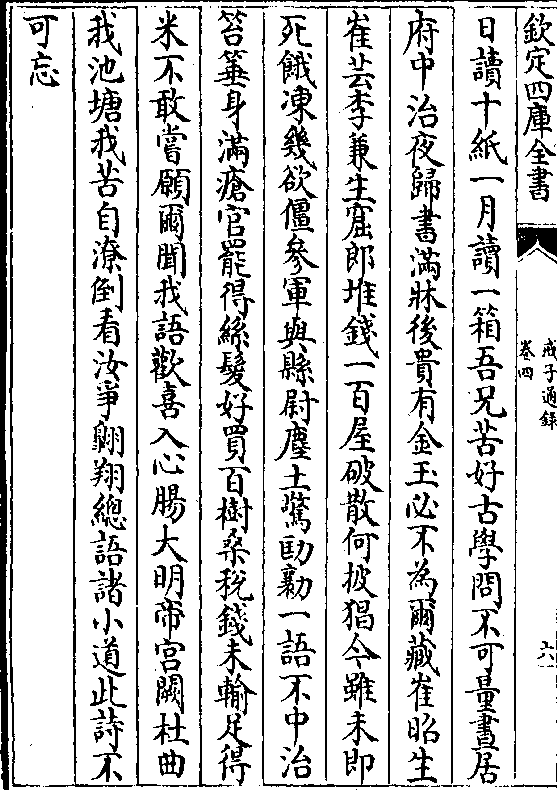 欽定四庫全書
戒子通錄
卷四
六
日讀十紙一月讀一箱吾兄苦好古學問不可量晝居
府中治夜歸書滿牀後貴有金玉必不為爾藏崔昭生
崔芸李兼生窟郎堆錢一百屋破散何披猖今雖未即
死餓凍幾欲僵參軍與縣尉塵土驚劻勷一語不中治
笞箠身滿瘡官罷得絲髮好買百樹桑稅錢未輸足得
米不敢嘗願爾聞我語歡喜入心腸大明帝宮闕杜曲
我池塘我苦自潦倒看汝爭翺翔總語諸小道此詩不
可忘